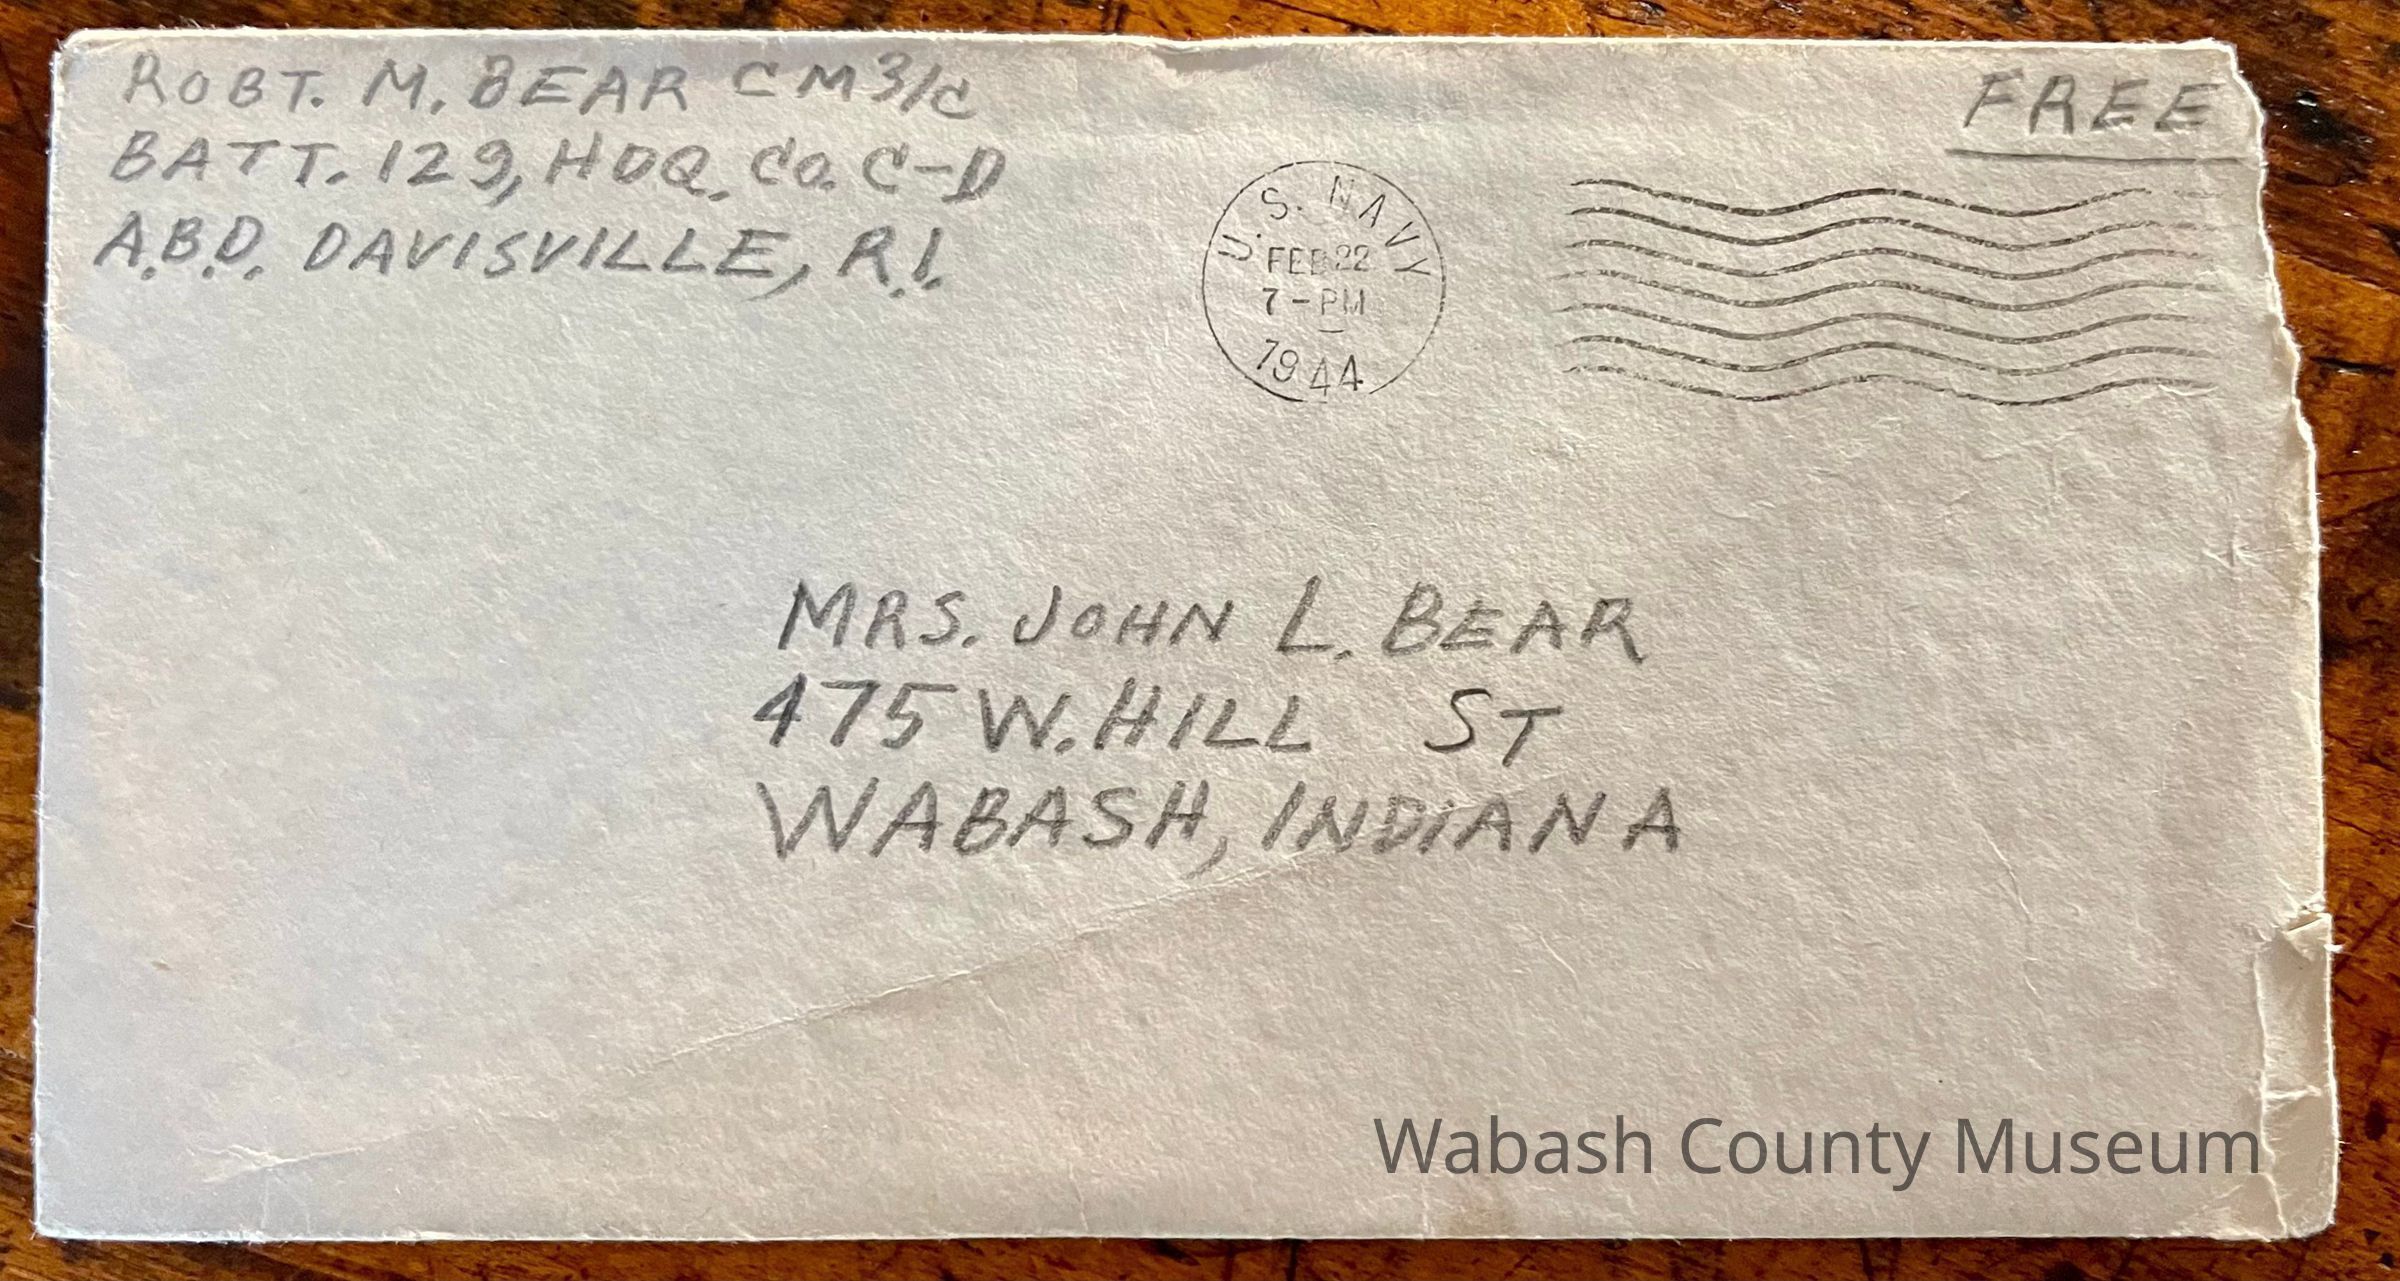 ROBT. M. BEAR CM3/C
BATT. 129, HDQ. Co. C-D
A.B.D. DAVISVILLE, R.I.
FREE
U.S. NAVY
FEB 22
7-PM
1944
MRS. JOHN L. BEAR
475 W. HILL ST
WABASH, INDIANA
Wabash County Museum